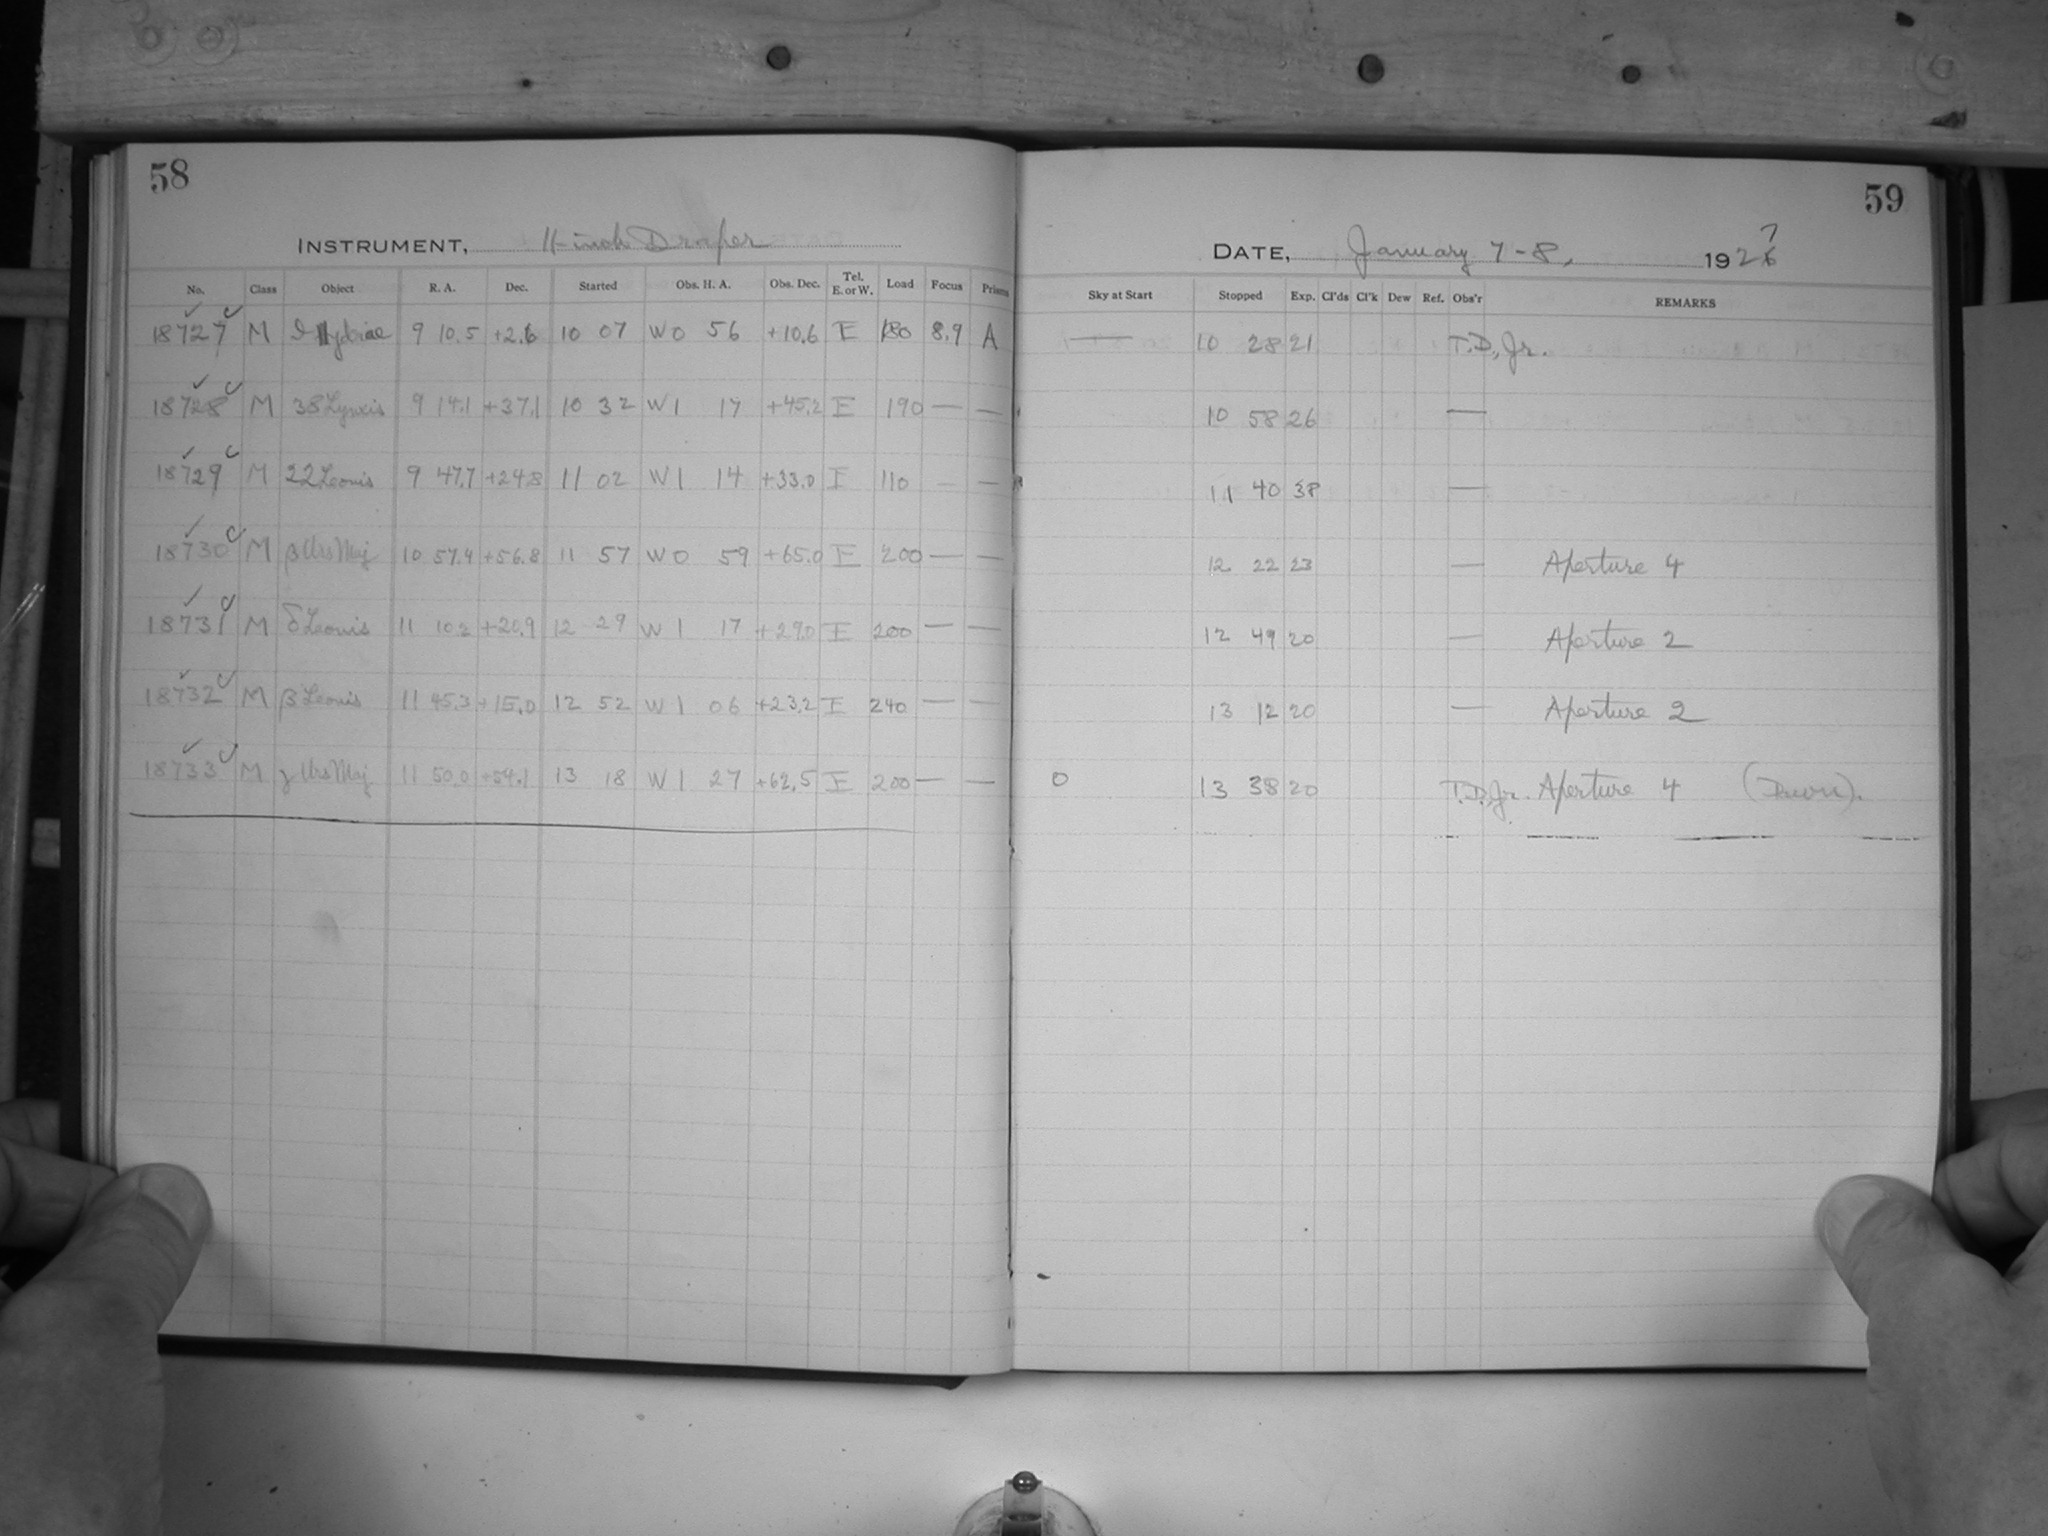 58
INSTRUMENT, 11-inch Draper
No. Class Object R. A. Dec. Started Obs. H. A. Obs. Dec. Tel. E. or W. Load Focus Prisms
18727 M θ Hydrae 9 10.5 +2.6 10 07 W 0 56 +10.6 E 180 8.9 A
18728 M 38 Lyncis 9 14.1 +37.1 10 32 W 1 17 +45.2 E 190 — —
18729 M 22 Leonis 9 47.7 +24.8 11 02 W 1 14 +33.0 E 110 — —
18730 M β Urs Maj 10 57.4 +56.8 11 57 W 0 59 +65.0 E 200 — —
18731 M δ Leonis 11 10.2 +20.9 12 29 W 1 17 +29.0 E 200 — —
18732 M β Leonis 11 45.3 +15.0 12 52 W 1 06 +23.2 E 240 — —
18733 M γ Urs Maj 11 50.0 +54.1 13 18 W 1 27 +62.5 E 200 — —
59
DATE, January 7-8, 1927
Sky at Start Stopped Exp. Cl'ds Cl'k Dew Ref. Obs'r REMARKS
— 10 28 21 T.D., Jr.
10 58 26 —
11 40 38 —
12 22 23 — Aperture 4
12 49 20 — Aperture 2
13 12 20 — Aperture 2
0 13 38 20 T.D., Jr. Aperture 4